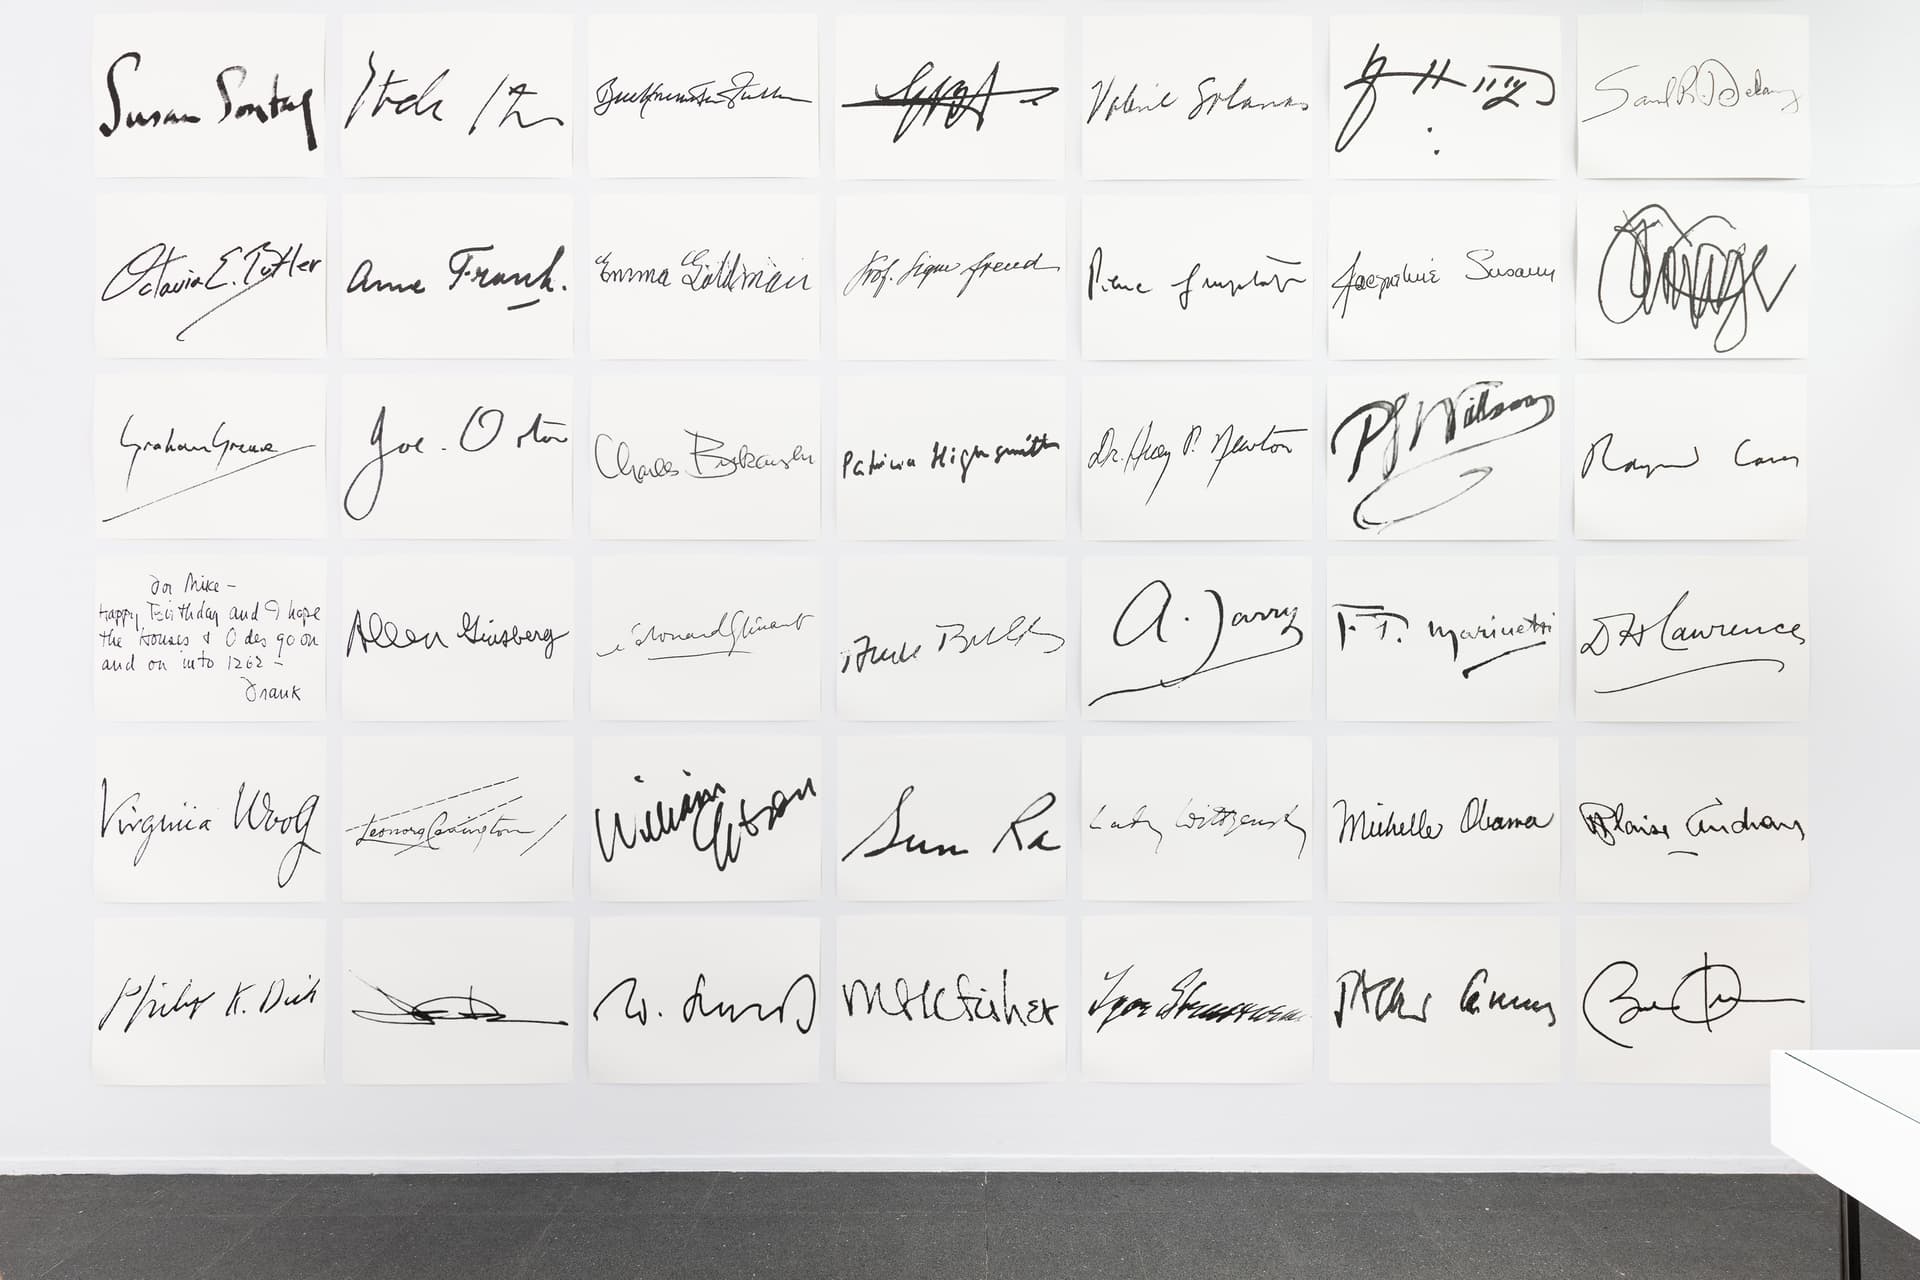 Susan Sontag
Buckminster Fuller
Valerie Solanas
Samuel R. Delany
Octavia E. Butler
Anne Frank.
Emma Goldman
Prof. Sigm. Freud
Pierre Guyotat
Jacqueline Susann
Graham Greene
Joe. Orton
Charles Bukowski
Patricia Highsmith
Dr. Huey P. Newton
Raymond Carver
For Mike –
Happy Birthday and I hope
the Houses & Odes go on
and on into 1262 –
Frank
Allen Ginsberg
Édouard Glissant
A. Jarry
F. T. Marinetti
D H Lawrence
Virginia Woolf
Leonora Carrington
William Gibson
Sun Ra
Ludwig Wittgenstein
Michelle Obama
Blaise Cendrars
Philip K. Dick
MFK Fisher
Igor Strawinsky